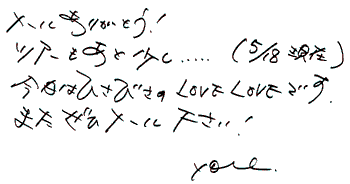 メールありがとう!
ツアーもあと少し..... (5/18現在)
今日はひさびさの LOVE LOVE です。
またぜひメール下さい!